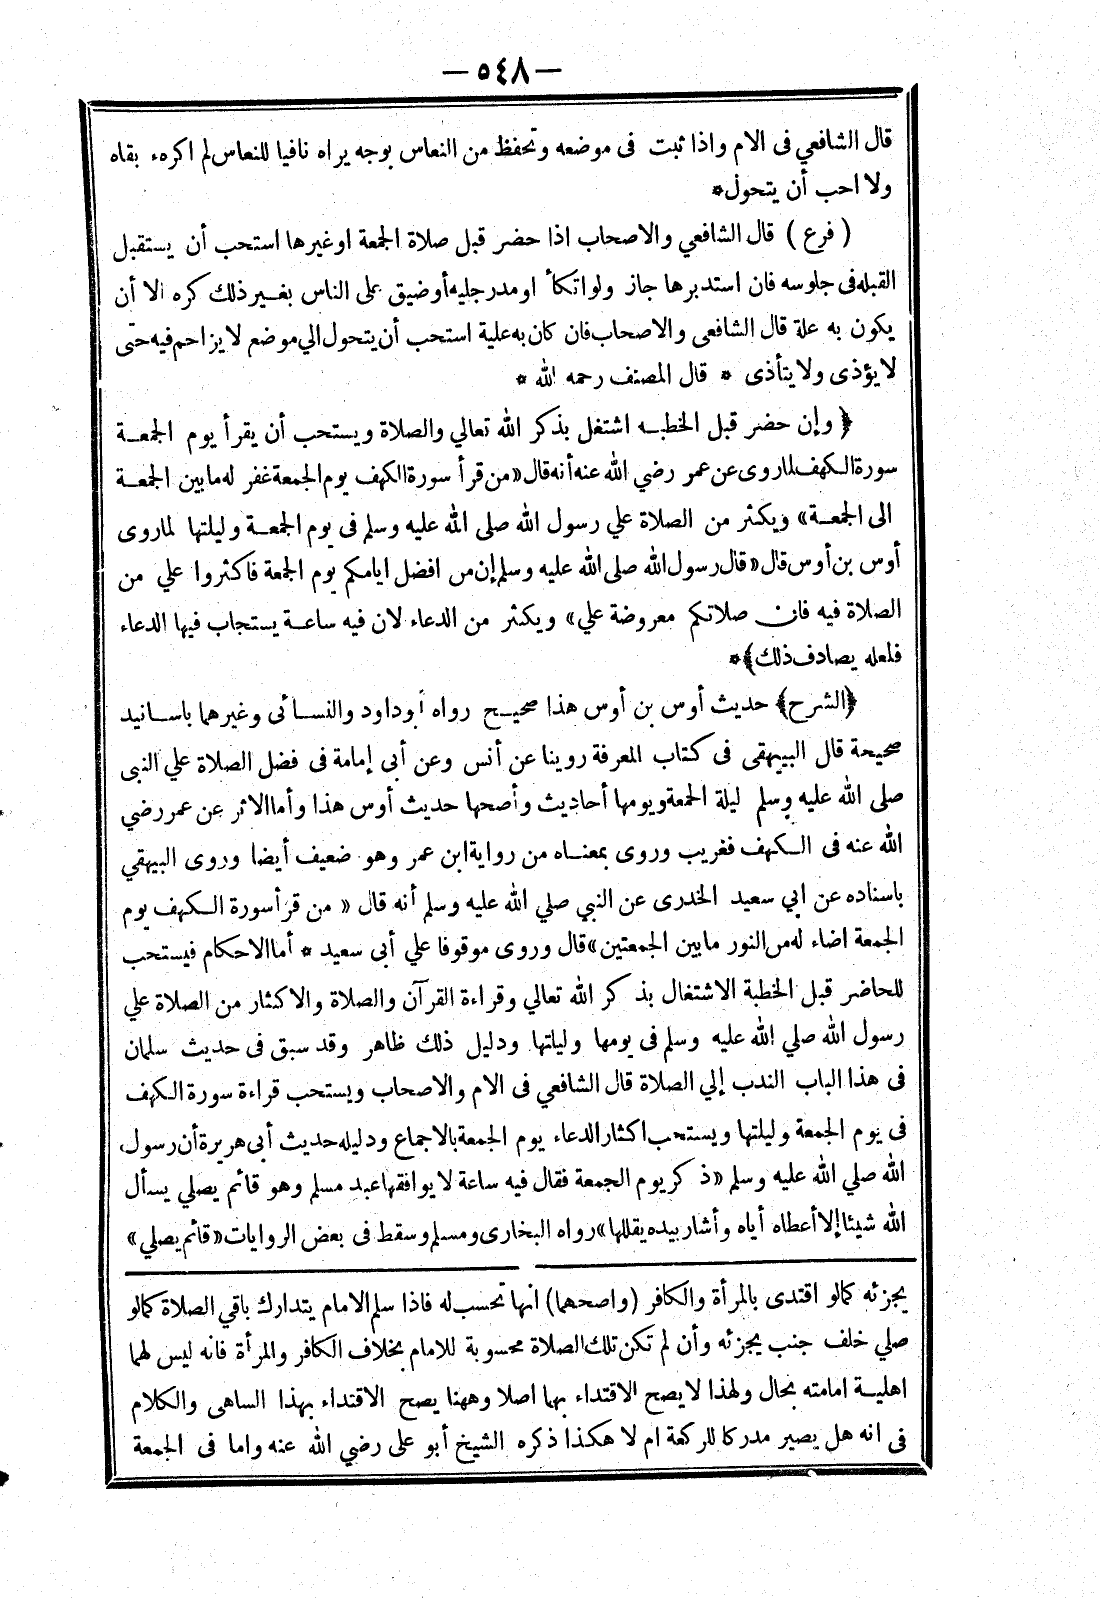 — ٥٤٨ —
قال الشافعي فى الام واذا ثبت فى موضعه وتحفظ من النعاس بوجه يراه نافيا للنعاس لم اكره بقاه
ولا احب أن يتحول*
( فرع ) قال الشافعي والاصحاب اذا حضر قبل صلاة الجمعة اوغيرها استحب أن يستقبل
القبله فى جلوسه فان استدبرها جاز ولو اتكأ او مد رجليه أوضيق على الناس بغير ذلك كره الا أن
يكون به علة قال الشافعى والاصحاب فان كان به علية استحب أن يتحول الي موضع لا يزاحم فيه حتى
لا يؤذى ولا يتأذى * قال المصنف رحمه الله *
﴿ وإن حضر قبل الخطبه اشتغل بذكر الله تعالي والصلاة ويستحب أن يقرأ يوم الجمعة
سورة الكهف لما روى عن عمر رضي الله عنه أنه قال «من قرأ سورة الكهف يوم الجمعة غفر له ما بين الجمعة
الى الجمعة» ويكثر من الصلاة علي رسول الله صلى الله عليه وسلم فى يوم الجمعة وليلتها لما روى
أوس بن أوس قال «قال رسول الله صلى الله عليه وسلم إن من افضل ايامكم يوم الجمعة فاكثروا علي من
الصلاة فيه فان صلاتكم معروضة علي» ويكثر من الدعاء لان فيه ساعة يستجاب فيها الدعاء
فلعله يصادف ذلك﴾*
﴿الشرح﴾ حديث أوس بن أوس هذا صحيح رواه أبوداود والنسائى وغيرهما باسانيد
صحيحة قال البيهقى فى كتاب المعرفة روينا عن أنس وعن أبى إمامة فى فضل الصلاة علي النبى
صلى الله عليه وسلم ليلة الجمعة ويومها أحاديث وأصحها حديث أوس هذا وأما الاثر عن عمر رضي
الله عنه فى الكهف فغريب وروى بمعناه من رواية ابن عمر وهو ضعيف أيضا وروى البيهقي
باسناده عن ابي سعيد الخدرى عن النبي صلي الله عليه وسلم أنه قال « من قرأ سورة الكهف يوم
الجمعة اضاء له من النور ما بين الجمعتين» قال وروى موقوفا علي أبى سعيد * أما الاحكام فيستحب
للحاضر قبل الخطبة الاشتغال بذكر الله تعالي وقراءة القرآن والصلاة والاكثار من الصلاة علي
رسول الله صلي الله عليه وسلم فى يومها وليلتها ودليل ذلك ظاهر وقد سبق فى حديث سلمان
فى هذا الباب الندب إلي الصلاة قال الشافعي فى الام والاصحاب ويستحب قراءة سورة الكهف
فى يوم الجمعة وليلتها ويستحب اكثار الدعاء يوم الجمعة بالاجماع ودليله حديث أبى هريرة أن رسول
الله صلي الله عليه وسلم «ذكر يوم الجمعة فقال فيه ساعة لا يوافقها عبد مسلم وهو قائم يصلي يسأل
الله شيئا إلا أعطاه أياه وأشار بيده يقللها» رواه البخارى ومسلم وسقط فى بعض الروايات «قائم يصلي»
يجزئه كمالو اقتدى بالمرأة والكافر (واصحهما) انها تحسب له فاذا سلم الامام يتدارك باقي الصلاة كمالو
صلي خلف جنب يجزئه وأن لم تكن تلك الصلاة محسوبة للامام بخلاف الكافر والمرأة فانه ليس لهما
اهلية امامته بحال ولهذا لا يصح الاقتداء بهما اصلا وههنا يصح الاقتداء بهذا الساهى والكلام
فى انه هل يصير مدركا للركعة ام لا هكذا ذكره الشيخ أبو على رضي الله عنه واما فى الجمعة